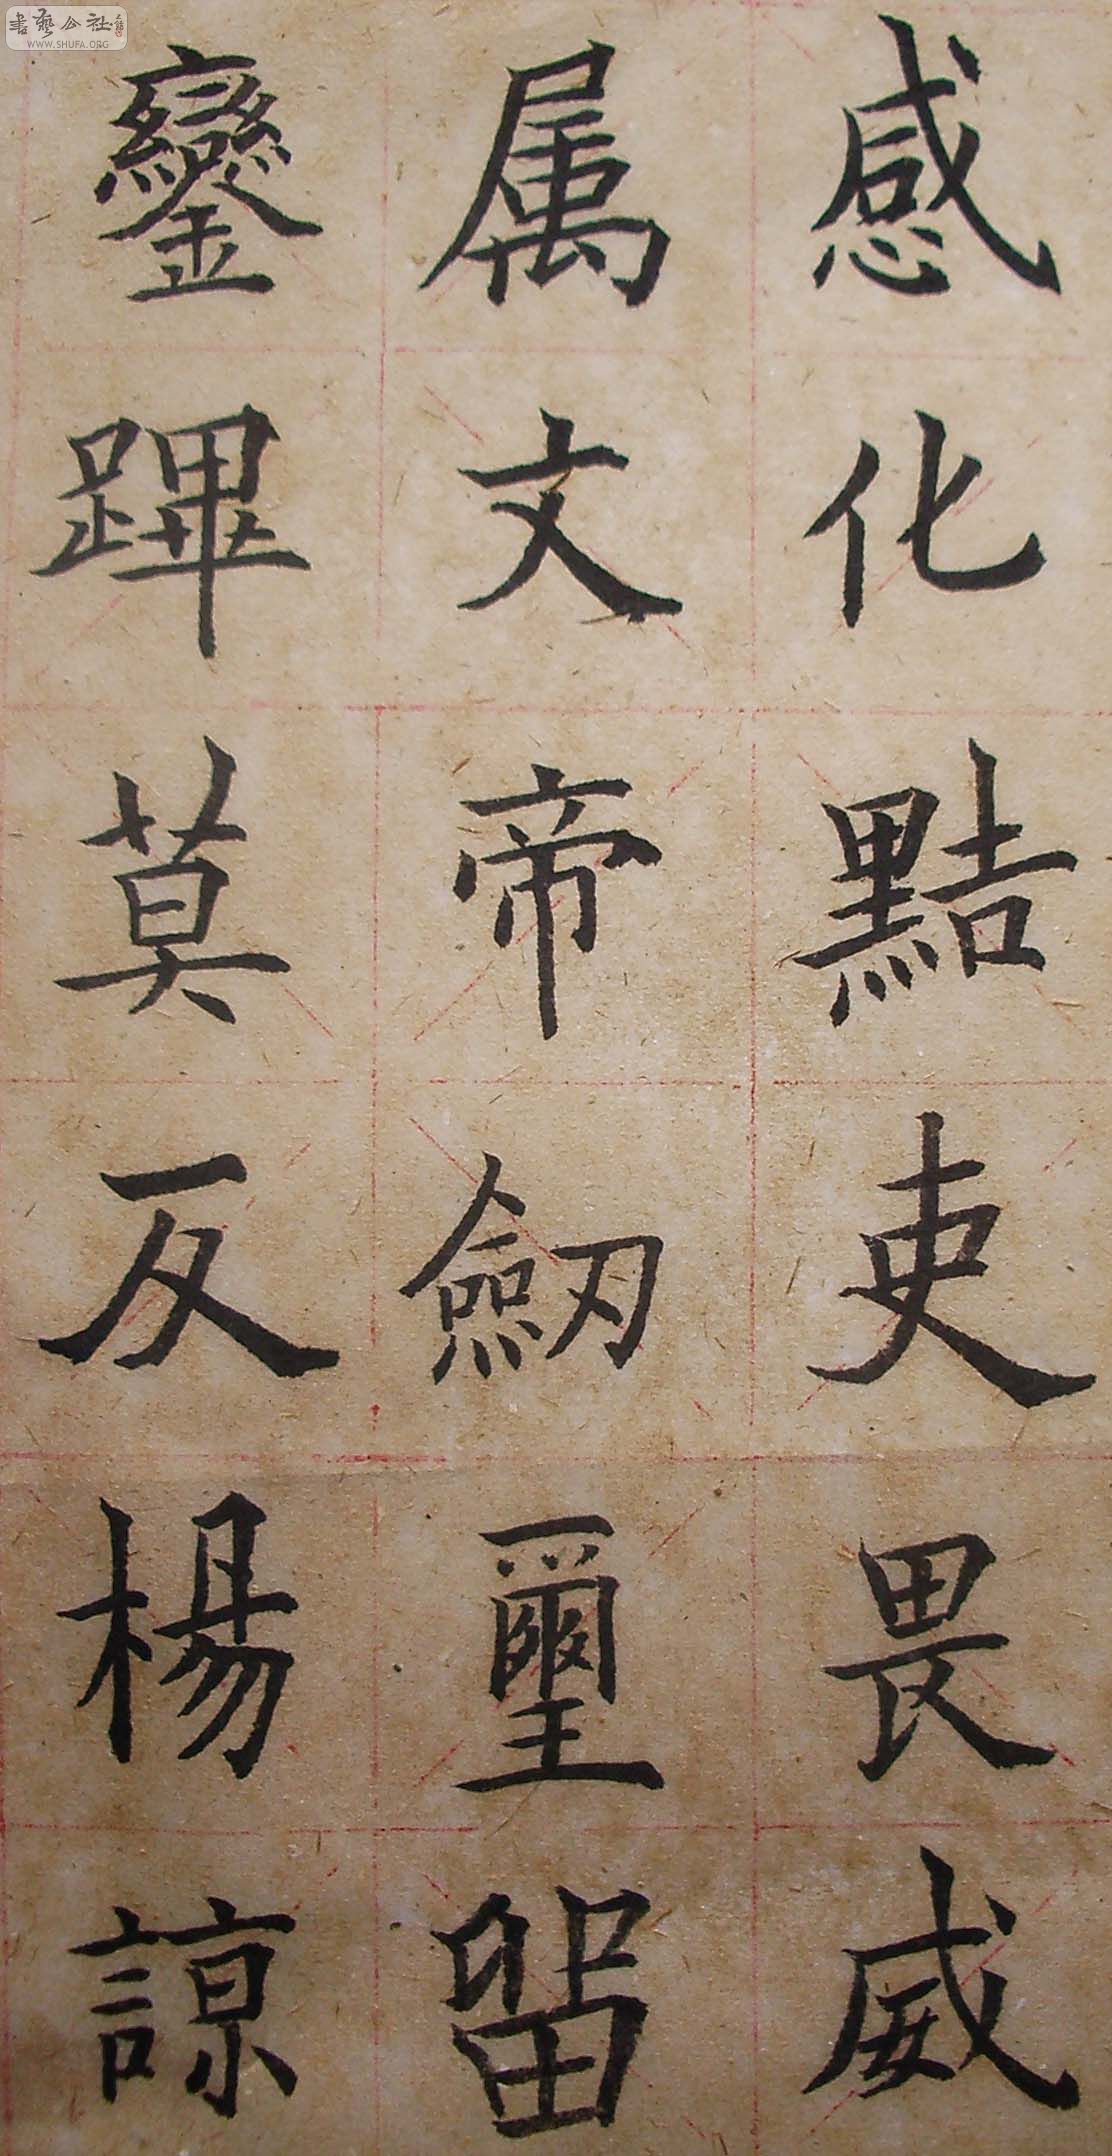 感化黠吏畏威
属文帝劔璽留
鑾蹕莫反楊諒
書藝公社
WWW.SHUFA.ORG